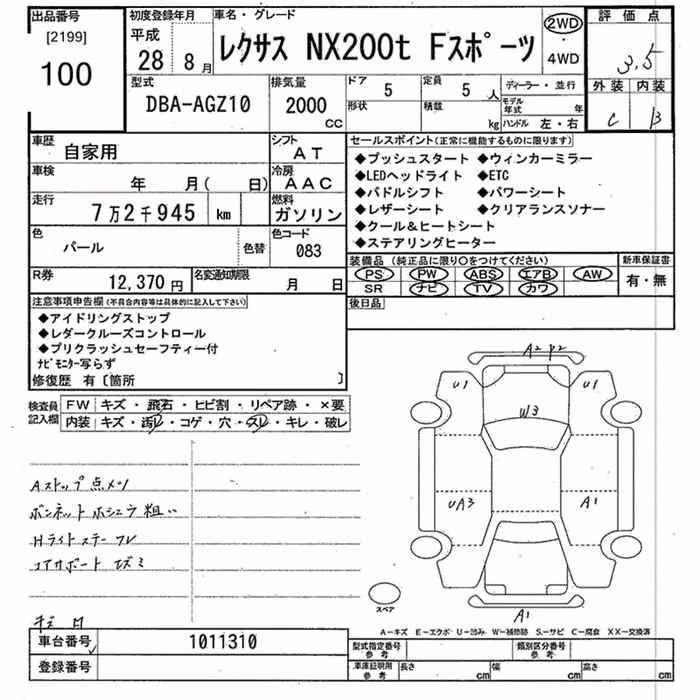 出品番号
[2199]
100
初度登録年月
平成
28 8月
車名・グレード
レクサス NX200t Fスポーツ
2WD
・
4WD
評価点
3.5
外装 内装
C B
型式
DBA-AGZ10
排気量
2000
CC
ドア
5
定員
5 人
形状
積載
kg
ディーラー・並行
モデル年式 年
ハンドル 左・右
車歴
自家用
シフト
AT
車検
年 月( 日)
冷房
AAC
走行
7万2千945 km
燃料
ガソリン
色
パール
色替
色コード
083
R券
12,370円
名変通知期限
月 日
セールスポイント(正常に機能するものに限ります)
◆プッシュスタート ◆ウィンカーミラー
◆LEDヘッドライト ◆ETC
◆パドルシフト ◆パワーシート
◆レザーシート ◆クリアランスソナー
◆クール&ヒートシート
◆ステアリングヒーター
装備品(純正品に限り○をつけてください)
PS PW ABS エアB AW
SR ナビ TV カワ
新車保証書
有・無
後日品
注意事項申告欄(不具合内容等は具体的に記入して下さい)
◆アイドリングストップ
◆レダークルーズコントロール
◆プリクラッシュセーフティー付
ナビモニター写らず
修復歴 有〔箇所 〕
検査員記入欄
FW キズ・飛石・ヒビ割・リペア跡・×要
内装 キズ・汚レ・コゲ・穴・スレ・キレ・破レ
Aストップ点メツ
ボンネット ホシュウ粗い
Hライトステー ワレ
コアサポート ヒズミ
A2 P2
U1
U1
W3
UA3
A1
A1
スペア
A−キズ E−エクボ U−凹み W−補修跡 S−サビ C−腐食 XX−交換済
車台番号
1011310
登録番号
型式指定番号
参考
類別区分番号
参考
車庫証明用
参考
長さ cm
幅 cm
高さ cm